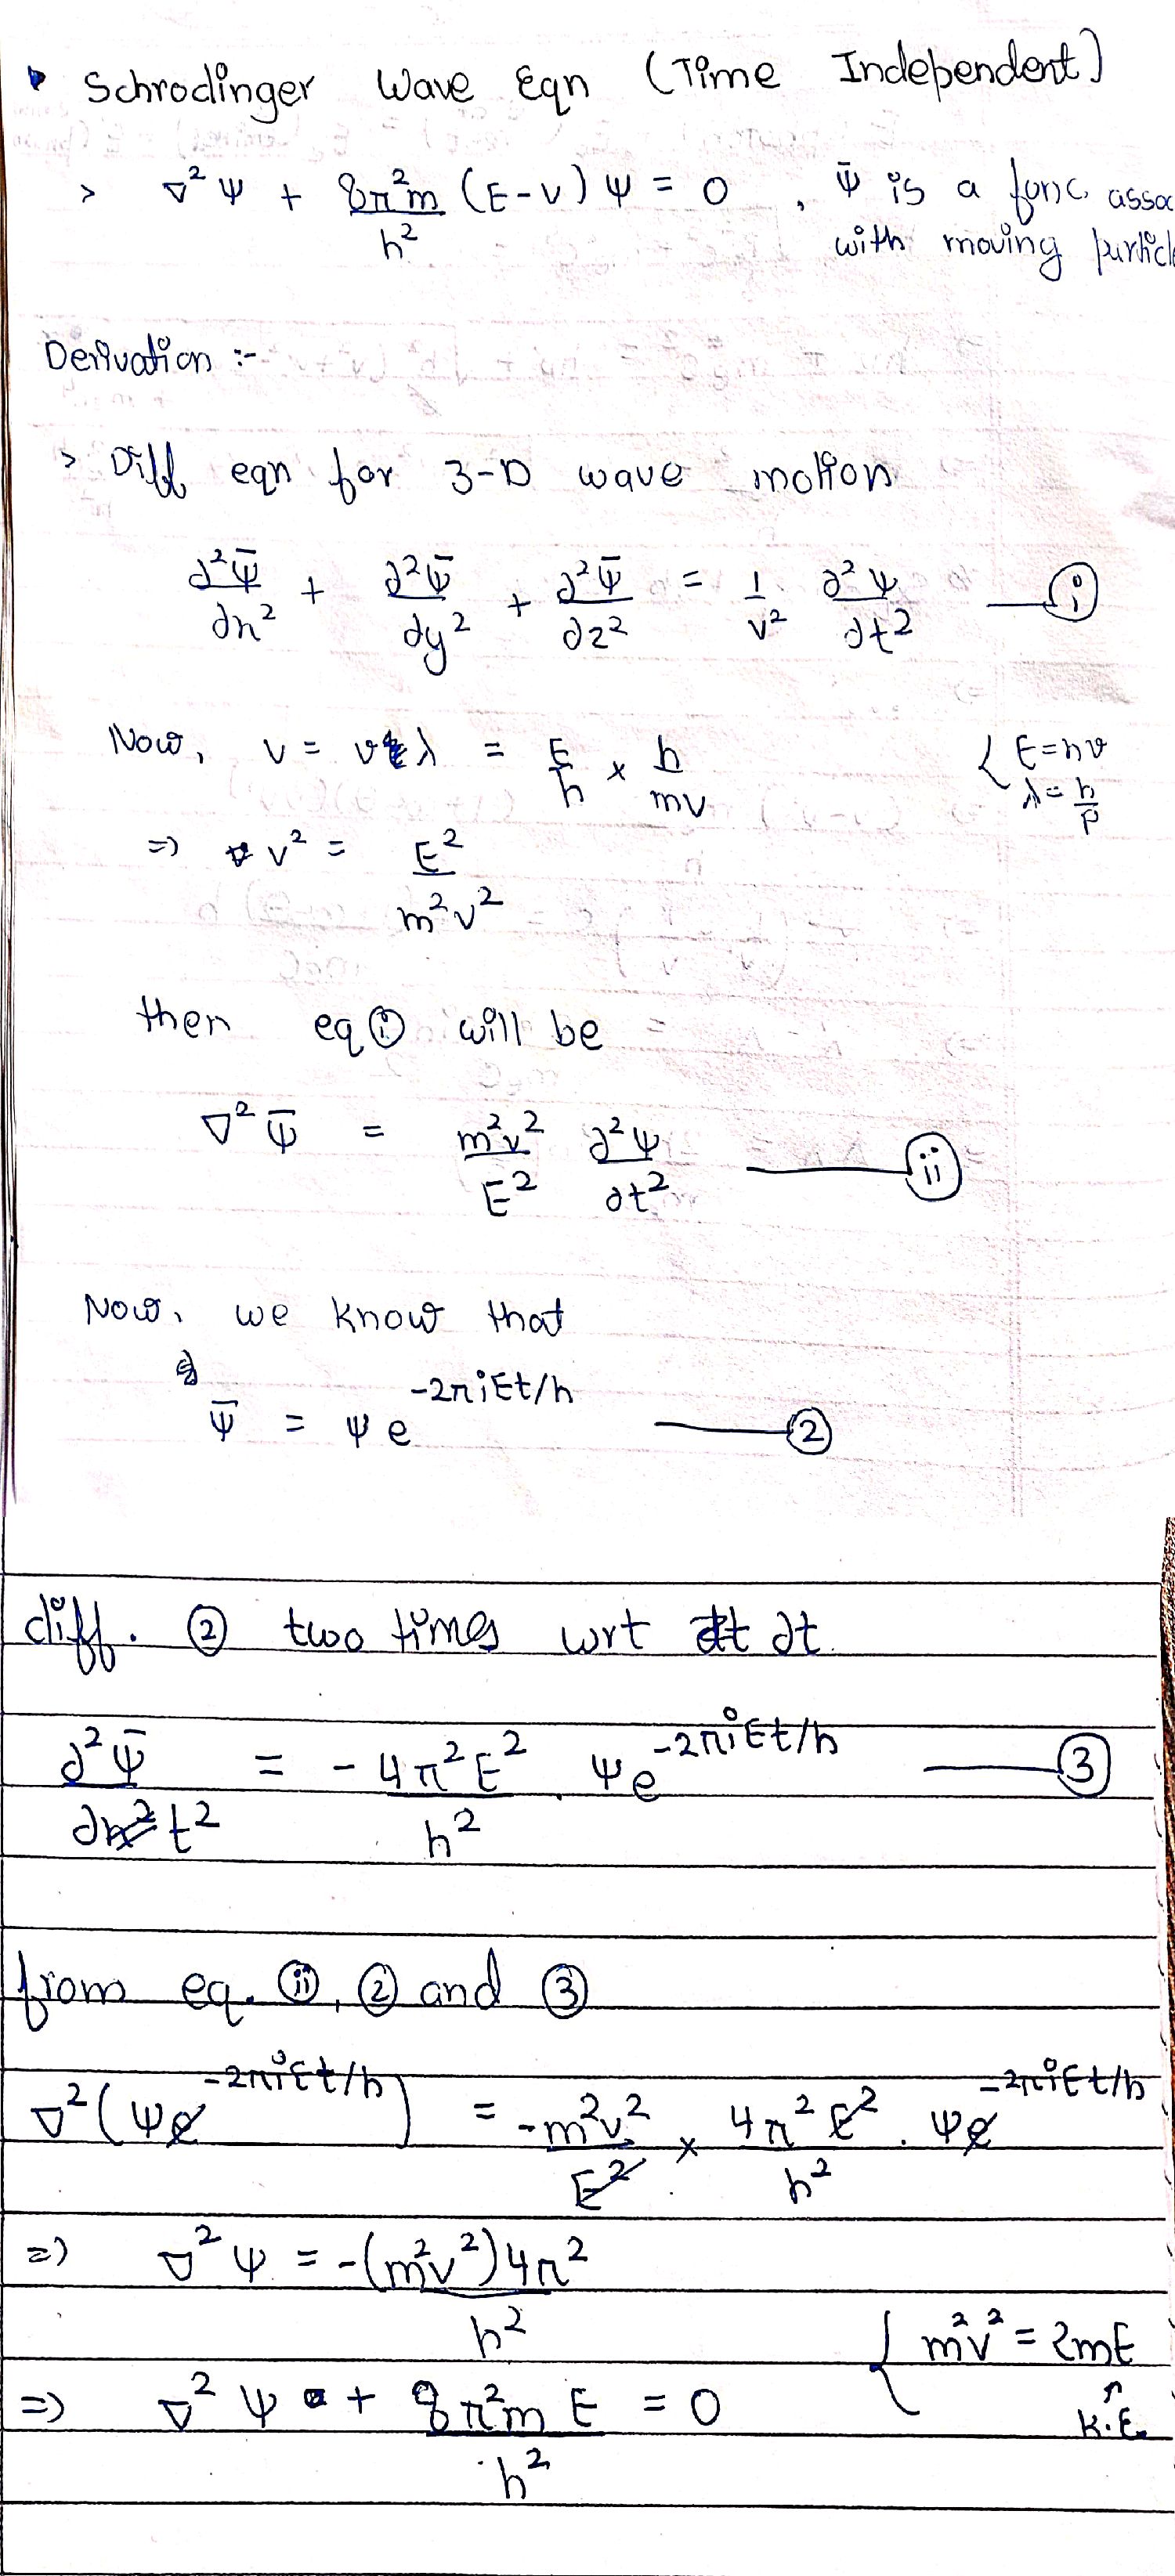 • Schrodinger Wave Eqn (Time Independent)
> ∇²ψ + 8π²m/h² (E-V) ψ = 0 , ψ̄ is a func. assoc
with moving particle
Derivation :-
> Diff eqn for 3-D wave motion
∂²ψ̄/∂x² + ∂²ψ̄/∂y² + ∂²ψ̄/∂z² = 1/v² ∂²ψ/∂t² — (i)
Now, v = νλ = E/h × h/mv { E=hν
λ=h/p
=> v² = E²/m²v²
then eq (i) will be
∇²ψ̄ = m²v²/E² ∂²ψ/∂t² — (ii)
Now, we know that
ψ̄ = ψe^(-2πiEt/h) — (2)
diff. (2) two times wrt ∂t
∂²ψ̄/∂t² = -4π²E²/h² . ψe^(-2πiEt/h) — (3)
from eq. (ii), (2) and (3)
∇²(ψe^(-2πiEt/h)) = -m²v²/E² × 4π²E²/h² . ψe^(-2πiEt/h)
=> ∇²ψ = -(m²v²)4π²/h²
{ m²v² = 2mE
↑
K.E.
=> ∇²ψ + 8π²m E/h² = 0